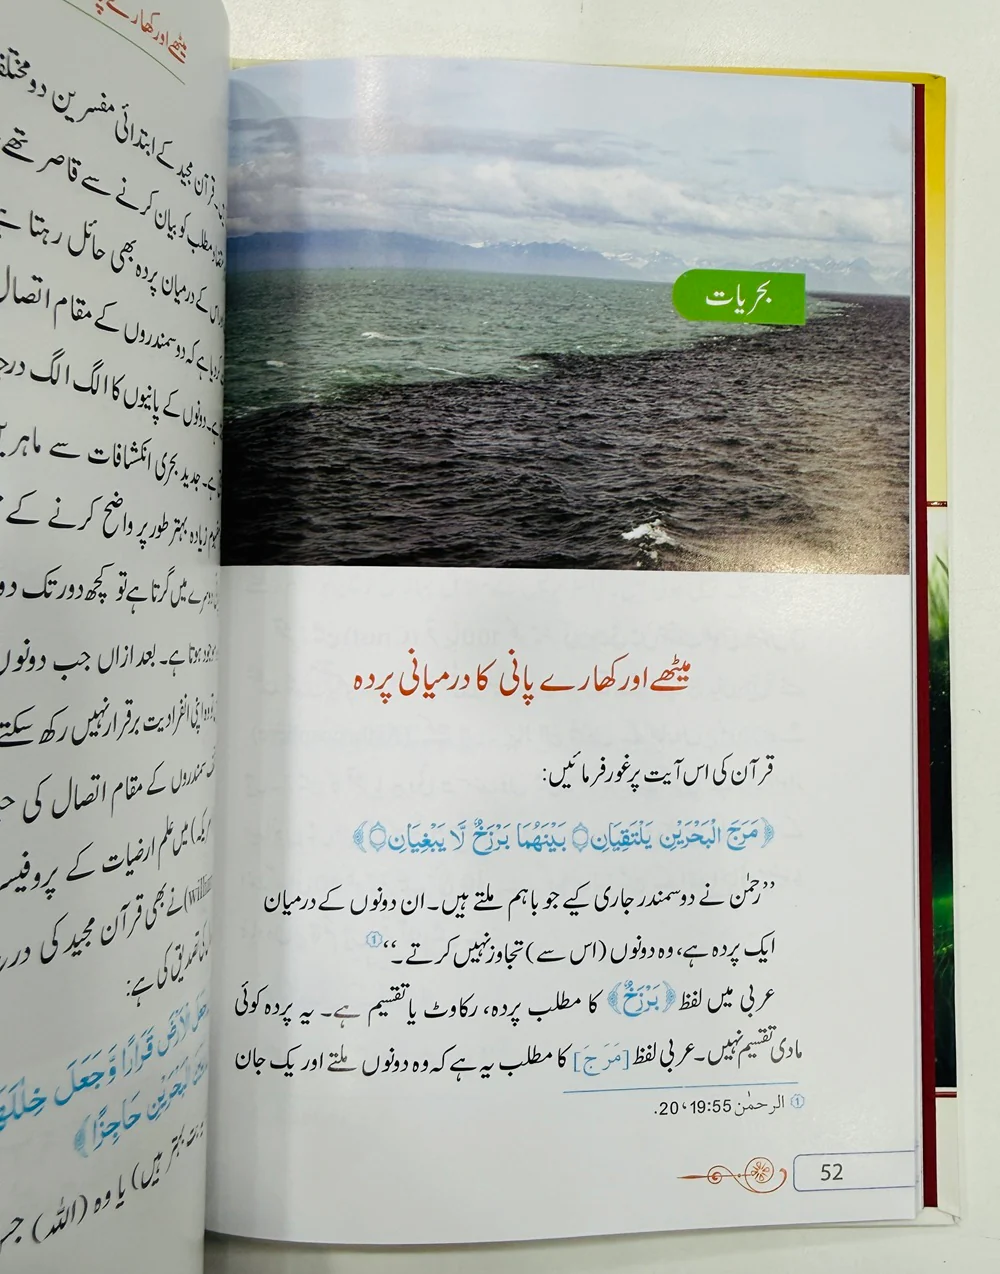 بحریات
میٹھے اور کھارے پانی کا درمیانی پردہ
قرآن کی اس آیت پر غور فرمائیں:
﴿مَرَجَ الْبَحْرَيْنِ يَلْتَقِيَانِ۝ بَيْنَهُمَا بَرْزَخٌ لَّا يَبْغِيَانِ۝﴾
’’رحمٰن نے دو سمندر جاری کیے جو باہم ملتے ہیں۔ ان دونوں کے درمیان
ایک پردہ ہے، وہ دونوں (اس سے) تجاوز نہیں کرتے۔‘‘①
عربی میں لفظ ﴿بَرْزَخٌ﴾ کا مطلب پردہ، رکاوٹ یا تقسیم ہے۔ یہ پردہ کوئی
مادی تقسیم نہیں۔ عربی لفظ [مَرَجَ] کا مطلب یہ ہے کہ وہ دونوں ملتے اور یک جان
① الرحمٰن 19:55، 20.
52
میٹھے اور کھارے
قرآن مجید کے ابتدائی مفسرین دو مختلف
مطلب کو بیان کرنے سے قاصر تھے
کے درمیان پردہ بھی حائل رہتا ہے
دیا ہے کہ دو سمندروں کے مقام اتصال
دونوں کے پانیوں کا الگ الگ
ہے۔ جدید بحری انکشافات سے ماہر
زیادہ بہتر طور پر واضح کرنے کے
میں گرتا ہے تو کچھ دور تک
ہوتا ہے۔ بعد ازاں جب دونوں
اپنی انفرادیت برقرار نہیں رکھ سکتے
سمندروں کے مقام اتصال کی
میں علم ارضیات کے پروفیسر
نے بھی قرآن مجید کی
کی تصدیق کی ہے:
الْأَرْضَ قَرَارًا وَّجَعَلَ خِلَٰلَهَا
الْبَحْرَيْنِ حَاجِزًا﴾
بہتر ہیں) یا وہ (اللہ) جس